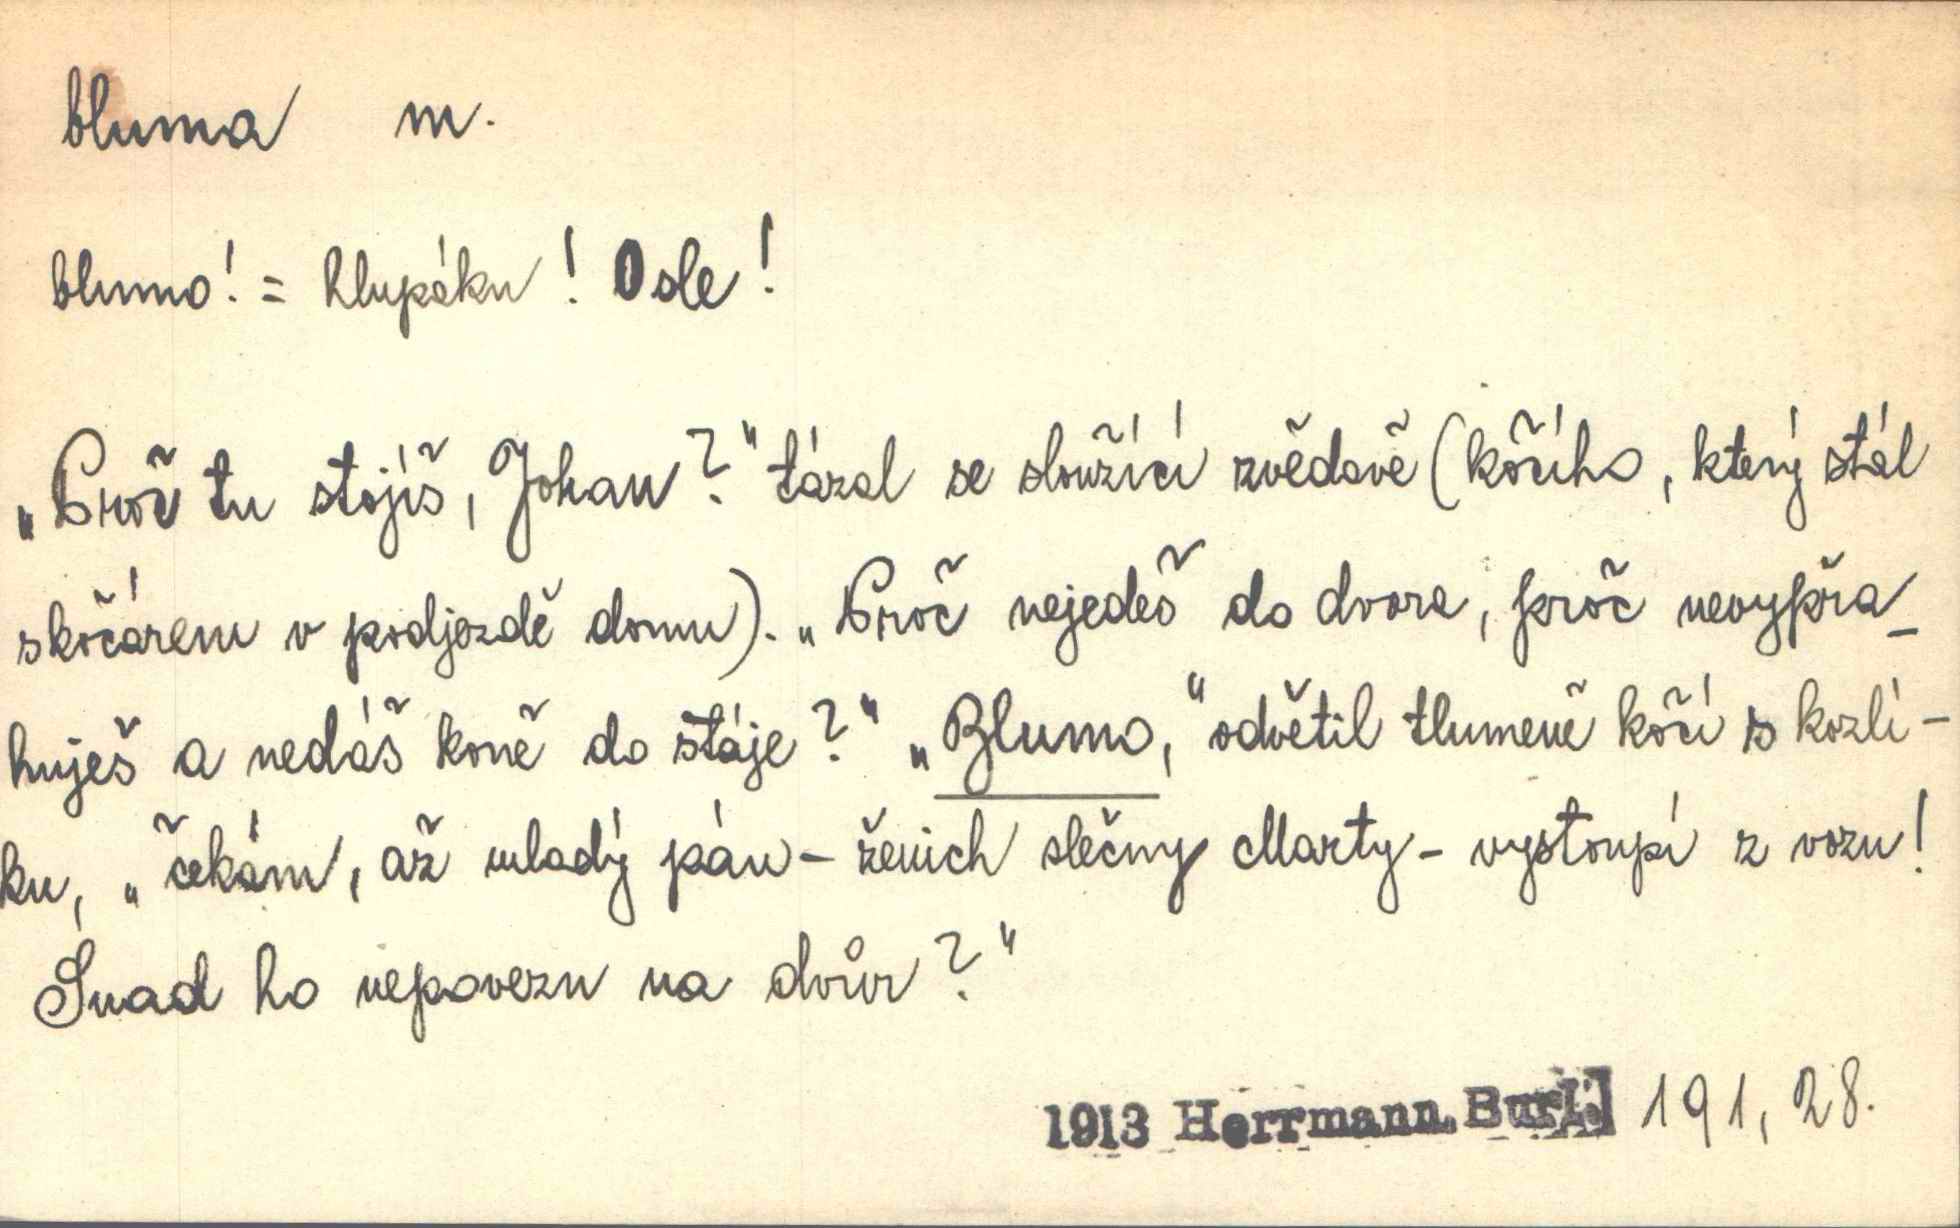 bluma m.
blumo! = hlupáku! Osle!
„Proč tu stojíš, Johan?" tázal se sloužící zvědavě (kočího, který stál
s kočárem v podjezdě domu). „Proč nejedeš do dvora, proč nevypřa-
huješ a nedáš koně do stáje?" „Blumo," odvětil tlumeně kočí s kozlí-
ku, „čekám, až mladý pán - ženich slečny Marty - vystoupí z vozu!
Snad ho nepovezu na dvůr?"
1913 Herrmann, Burl. 191, 28.